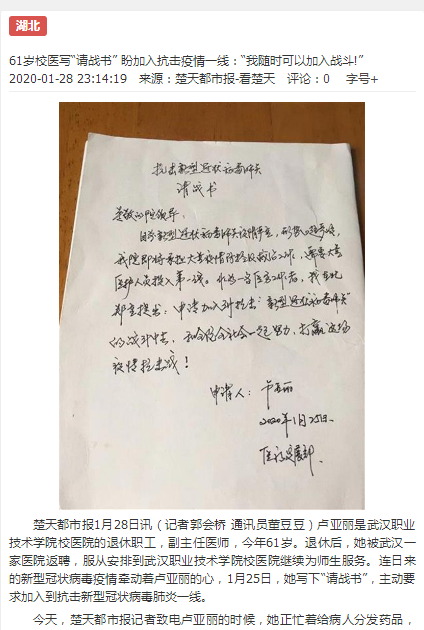 湖北
61岁校医写“请战书” 盼加入抗击疫情一线：“我随时可以加入战斗!”
2020-01-28 23:14:19 来源：楚天都市报-看楚天 评论：0 字号+
抗击新型冠状病毒肺炎
请战书
尊敬的院领导：
目前新型冠状病毒肺炎疫情严重，形势
我院即将承担大量疫情防控救治工作，需要大量
医护人员投入第一线。作为一名医务工作者，我在此
郑重提出：申请加入到抗击“新型冠状病毒肺炎”
的战斗中去，和全院全社会一起努力，打赢这场
疫情抗击战！
申请人：卢亚丽
2020年1月25日
医疗发展部
楚天都市报1月28日讯（记者郭会桥 通讯员董豆豆）卢亚丽是武汉职业
技术学院校医院的退休职工，副主任医师，今年61岁。退休后，她被武汉一
家医院返聘，服从安排到武汉职业技术学院校医院继续为师生服务。连日来
的新型冠状病毒疫情牵动着卢亚丽的心，1月25日，她写下“请战书”，主动要
求加入到抗击新型冠状病毒肺炎一线。
今天，楚天都市报记者致电卢亚丽的时候，她正忙着给病人分发药品，